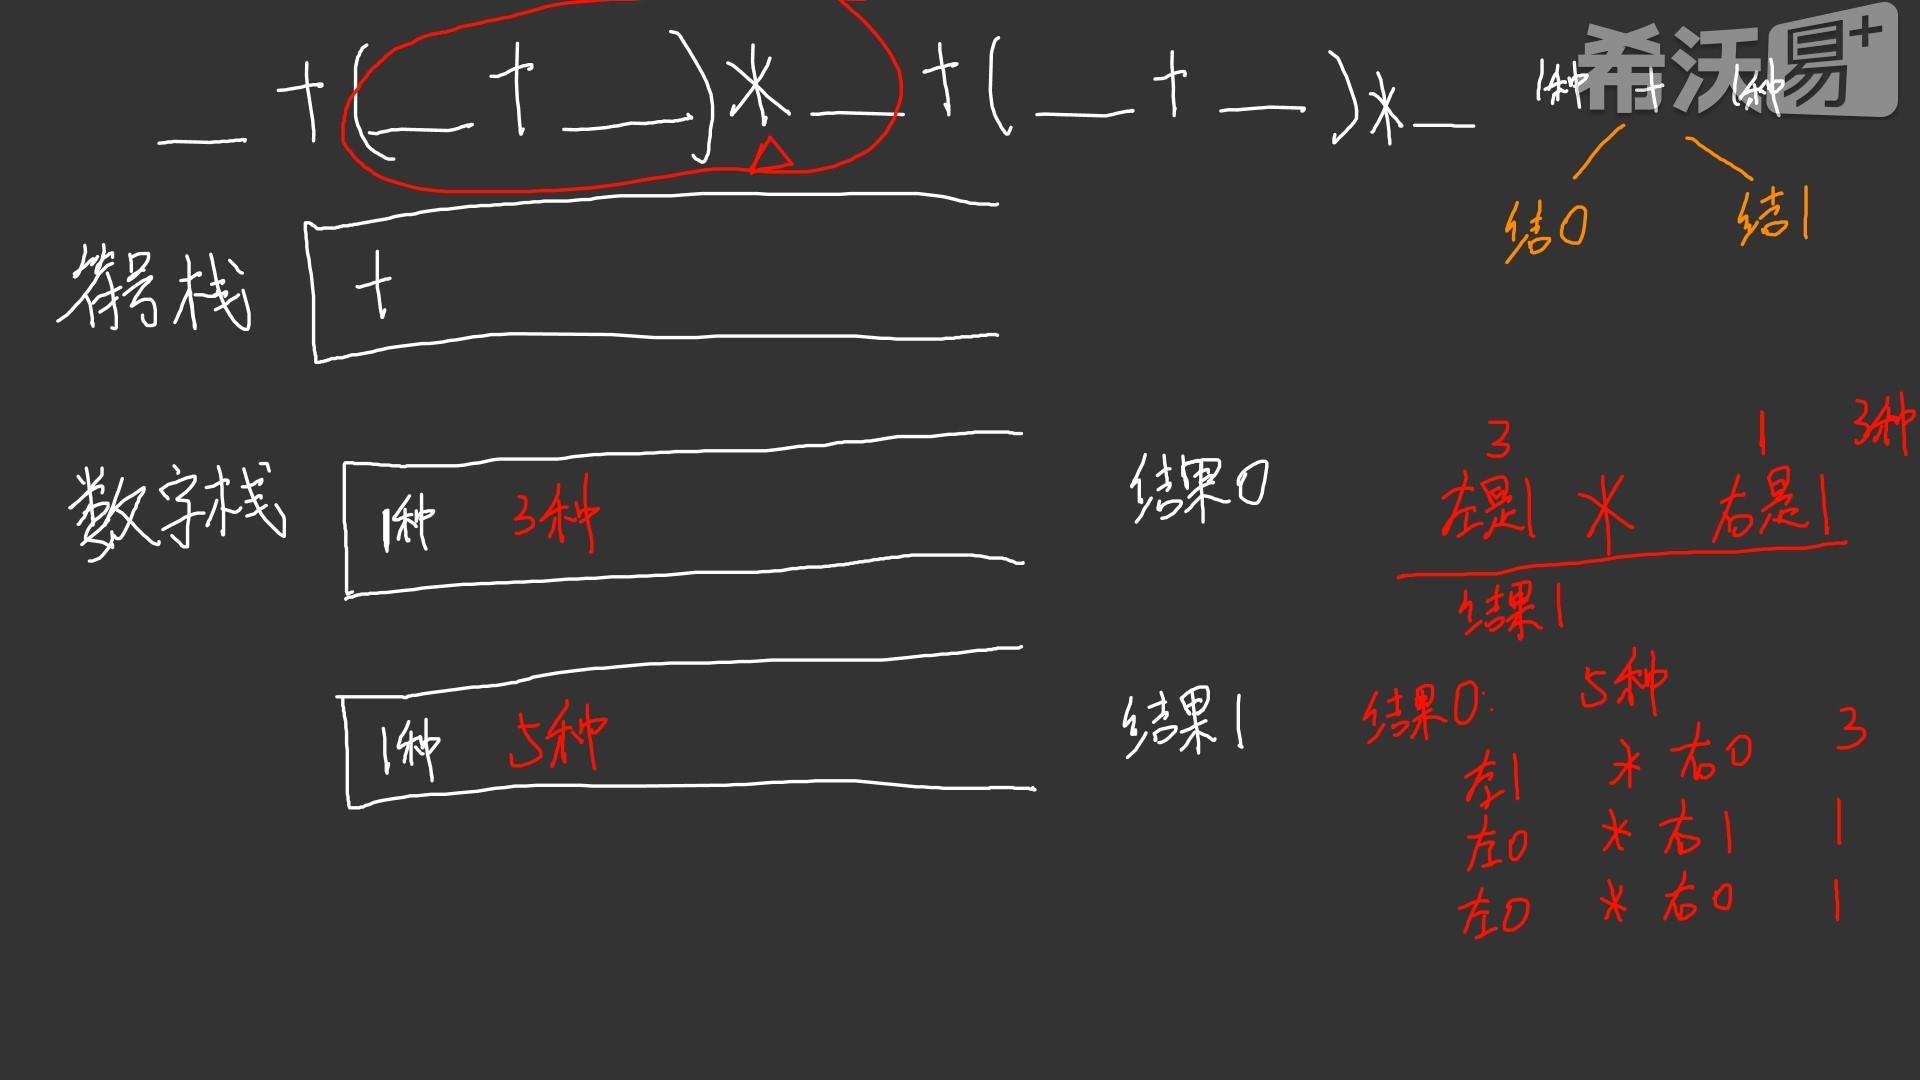 __+(__+__)*__+(__+__)*__
1种 + 1种
希沃易+
结0 结1
符号栈 +
数字栈 1种 3种 结果0
1种 5种 结果1
3 1 3种
左是1 * 右是1
结果1
结果0: 5种
左1 * 右0 3
左0 * 右1 1
左0 * 右0 1